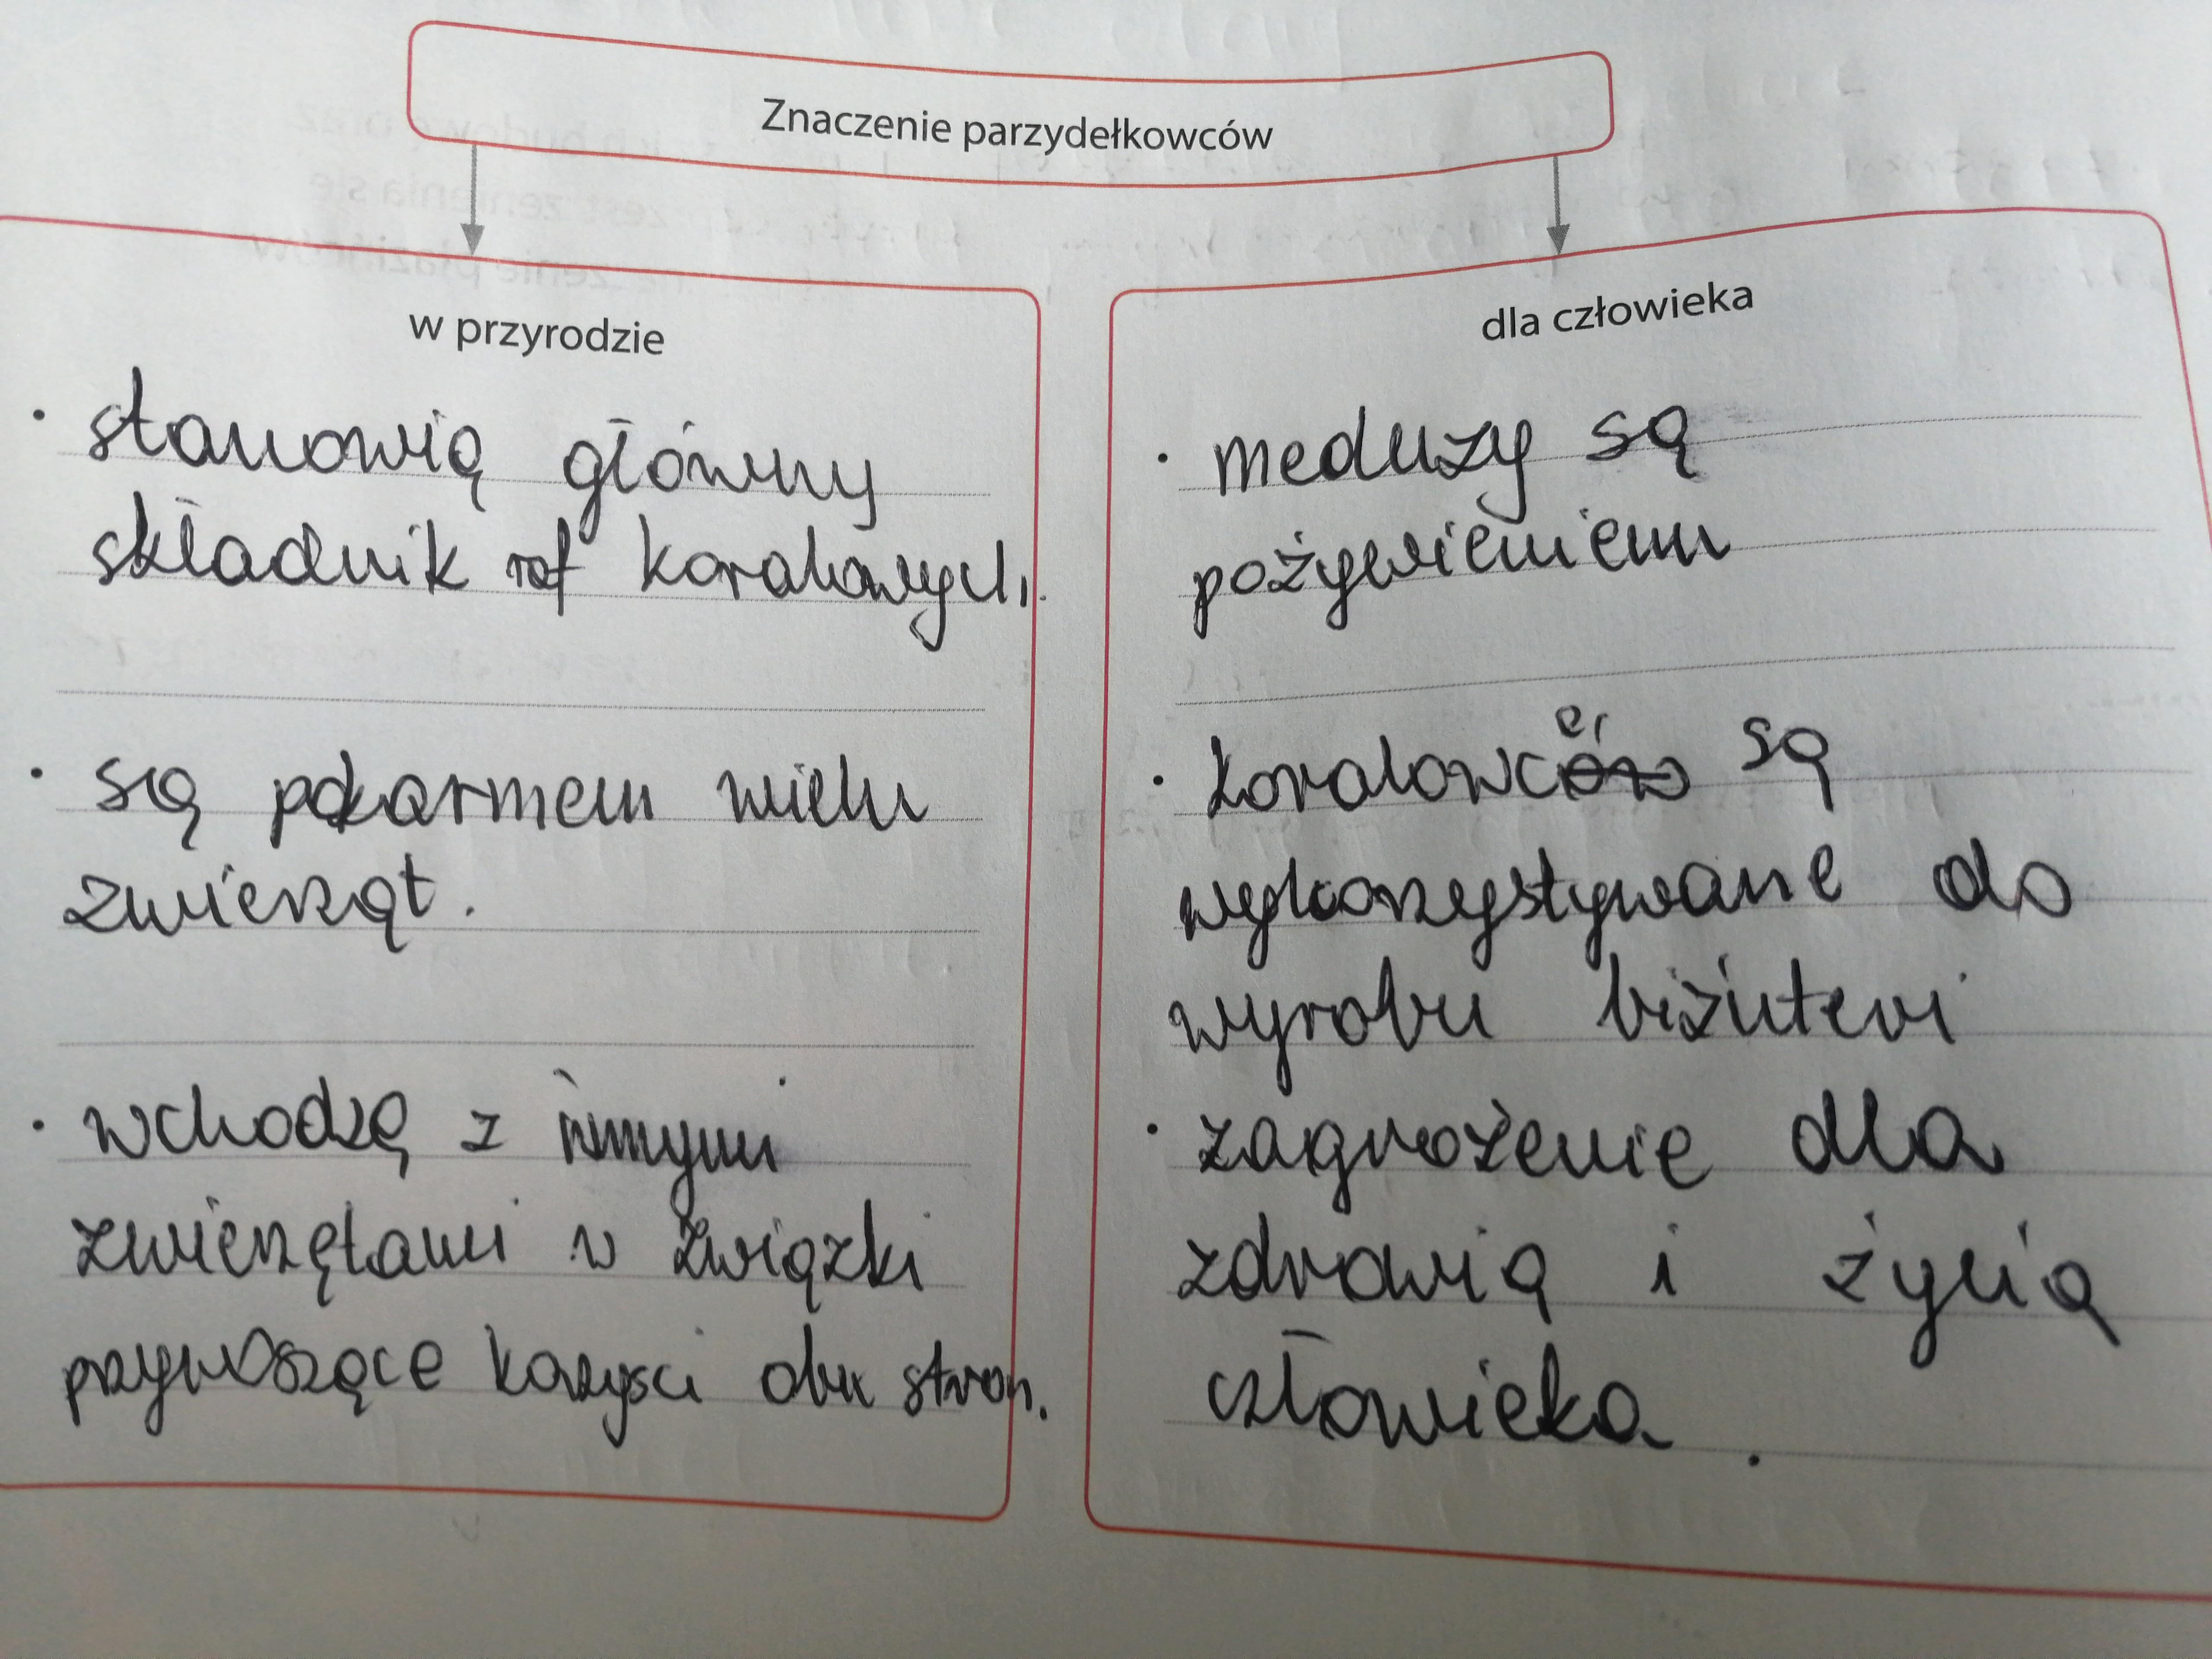 Znaczenie parzydełkowców
w przyrodzie
· stanowią główny
składnik raf koralowych.
· są pokarmem wielu
zwierząt.
· wchodzą z innymi
zwierzętami w związki
przynoszące korzyści obu stron.
dla człowieka
· meduzy są
pożywieniem
· koralowce są
wykorzystywane do
wyrobu biżuteri
· zagrożenie dla
zdrowią i życią
człowieka.